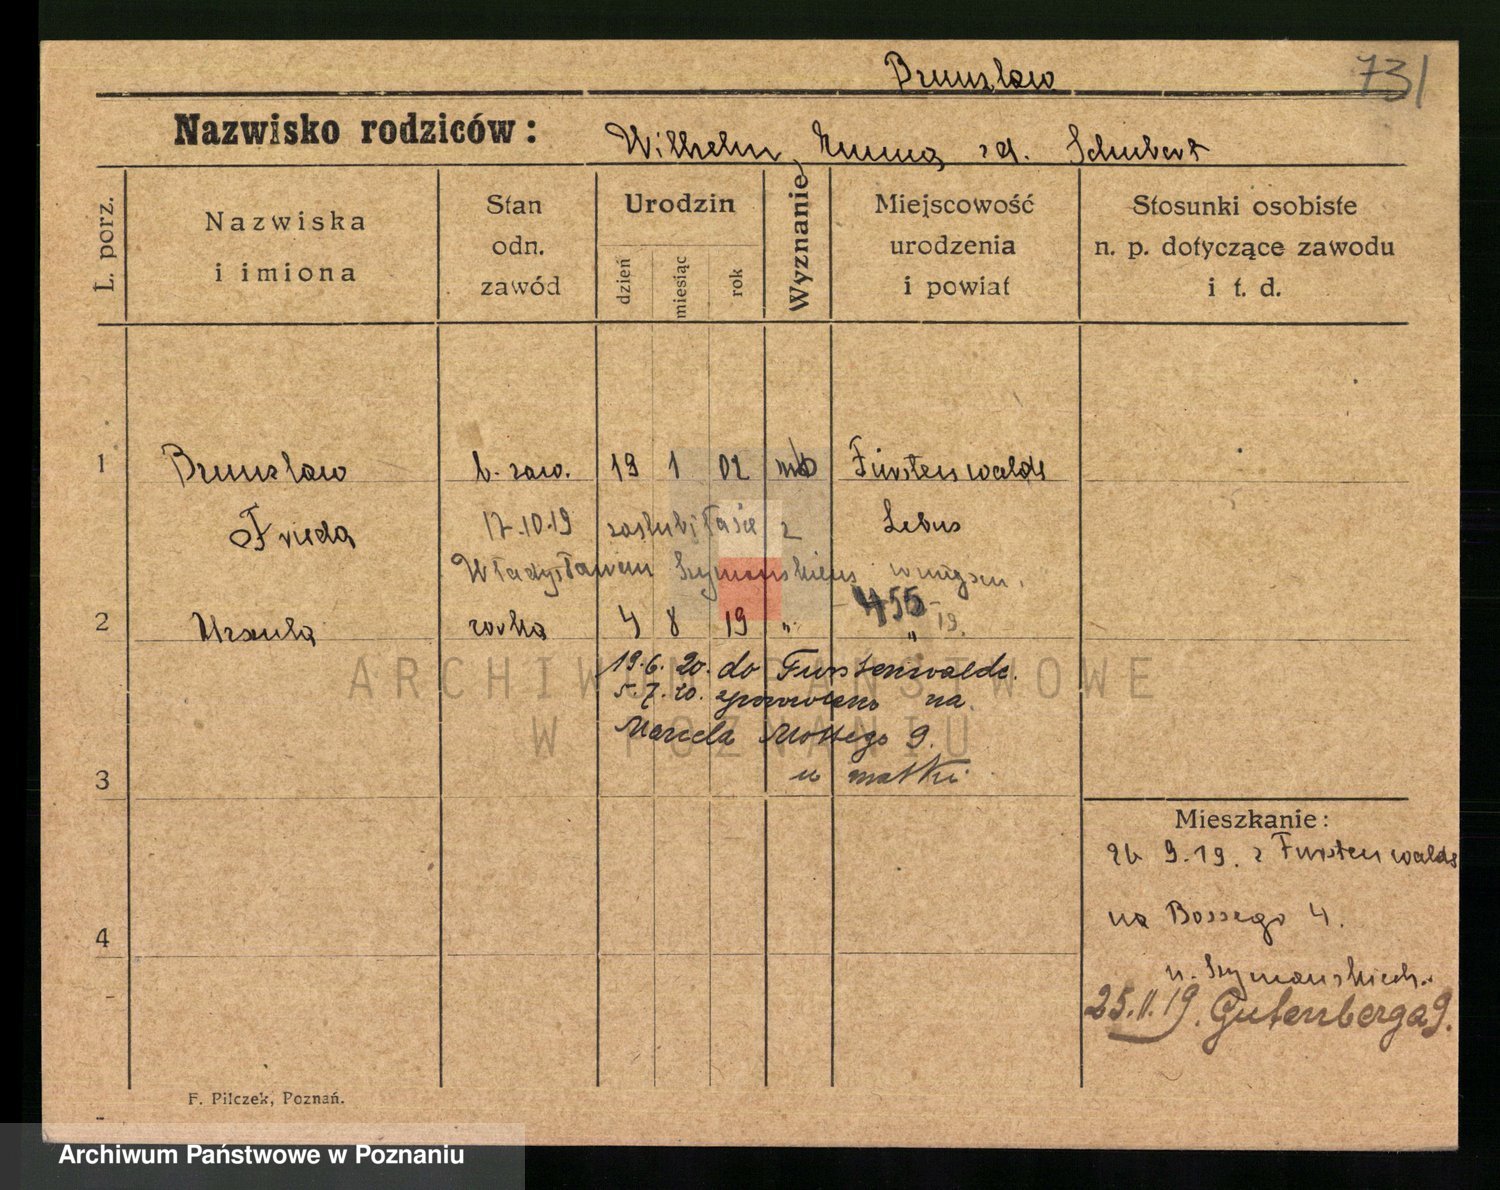 Brunzlow
731
Nazwisko rodziców: Wilhelm, Emma zd. Schubert
L. porz.
Nazwiska i imiona
Stan odn. zawód
Urodzin
dzień
miesiąc
rok
Wyznanie
Miejscowość urodzenia i powiat
Stosunki osobiste n. p. dotyczące zawodu i t. d.
1 Brunzlow b. zaw. 19 1 02 Fürstenwalde
Frieda 17.10.19 zaślubiła się z Lebus
Władysławem Szymańskim
455
19.
2 Urszula córka 4 8 19 " "
19.6.20. do Furstenwalde.
5.7.20. na
Marcela Mottego 9.
u matki
3
Mieszkanie:
9.19. z Furstenwalde
na Bossego 4.
u. Szymańskich.
25.11.19. Gutenberga 9.
4
F. Pilczek, Poznań.
ARCHIWUM PAŃSTWOWE
W POZNANIU
Archiwum Państwowe w Poznaniu